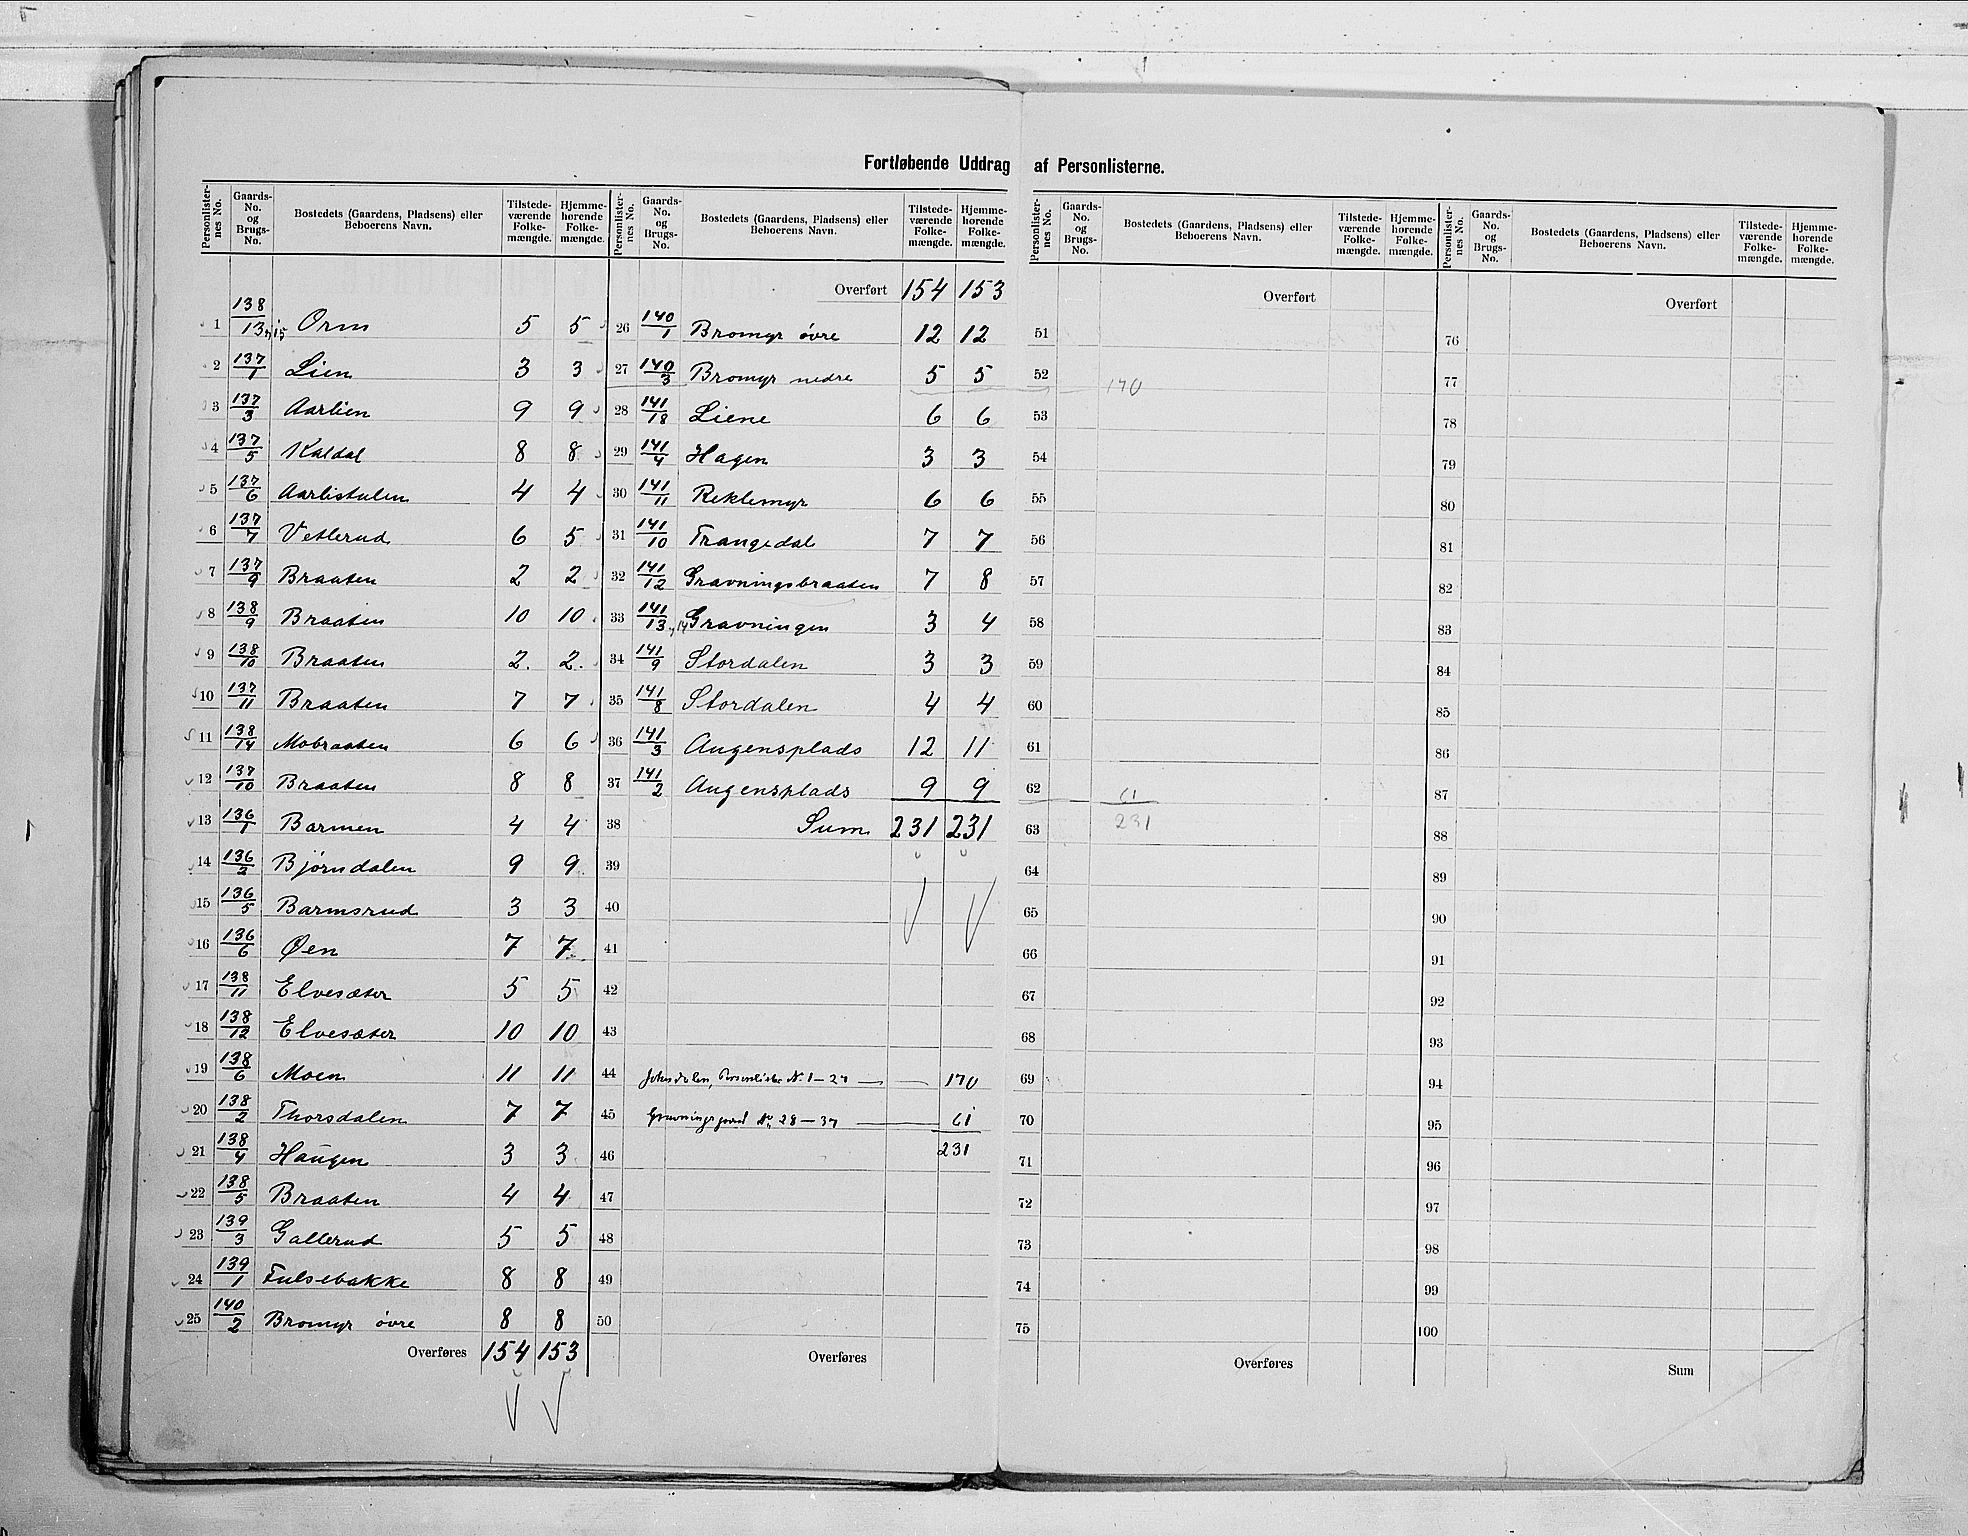 Fortløbende Uddrag af Personlisterne.
Personlister-nes No. | Gaards-No. og Brugs-No. | Bostedets (Gaardens, Pladsens) eller Beboerens Navn. | Tilstede-værende Folke-mængde. | Hjemme-hørende Folke-mængde.
1 138/13, 15 Orm 5 5
2 137/1 Lien 3 3
3 137/3 Aarlien 9 9
4 137/5 Kaldal 8 8
5 137/6 Aarlistulen 4 4
6 137/7 Vetlerud 6 5
7 137/9 Braaten 2 2
8 138/9 Braaten 10 10
9 138/10 Braaten 2. 2.
10 137/11 Braaten 7 7
11 138/14 Mobraaten 6 6
12 137/10 Braaten 8 8
13 136/1 Barmen 4 4
14 136/2 Bjørndalen 9 9
15 136/5 Barmsrud 3 3
16 136/6 Øen 7 7
17 138/11 Elvesæter 5 5
18 138/12 Elvesæter 10 10
19 138/6 Moen 11 11
20 138/2 Thorsdalen 7 7
21 138/4 Haugen 3 3
22 138/5 Braaten 4 4
23 139/3 Gallerud 5 5
24 139/1 Fulsebakke 8 8
25 140/2 Bromyr øvre 8 8
Overføres 154 153
Personlister-nes No. | Gaards-No. og Brugs-No. | Bostedets (Gaardens, Pladsens) eller Beboerens Navn. | Tilstede-værende Folke-mængde. | Hjemme-hørende Folke-mængde.
Overført 154 153
26 140/1 Bromyr øvre 12 12
27 140/3 Bromyr nedre 5 5
28 141/18 Liene 6 6
29 141/4 Hagen 3 3
30 141/11 Reklemyr 6 6
31 141/10 Trangedal 7 7
32 141/12 Gravningsbraaten 7 8
33 141/13, 14 Gravningen 3 4
34 141/9 Stordalen 3 3
35 141/8 Stordalen 4 4
36 141/3 Augensplads 12 11
37 141/2 Augensplads 9 9
38 Sum 231 231
39
40
41
42
43
44 Personlister N. 1-27 — 170
45 N. 28-37 — 61
46 231
47
48
49
50
Overføres
Personlister-nes No. | Gaards-No. og Brugs-No. | Bostedets (Gaardens, Pladsens) eller Beboerens Navn. | Tilstede-værende Folke-mængde. | Hjemme-hørende Folke-mængde.
Overført
51
52 170
53
54
55
56
57
58
59
60
61
62 61
63 231
64
65
66
67
68
69
70
71
72
73
74
75
Overføres
Personlister-nes No. | Gaards-No. og Brugs-No. | Bostedets (Gaardens, Pladsens) eller Beboerens Navn. | Tilstede-værende Folke-mængde. | Hjemme-hørende Folke-mængde.
Overført
76
77
78
79
80
81
82
83
84
85
86
87
88
89
90
91
92
93
94
95
96
97
98
99
100
Sum